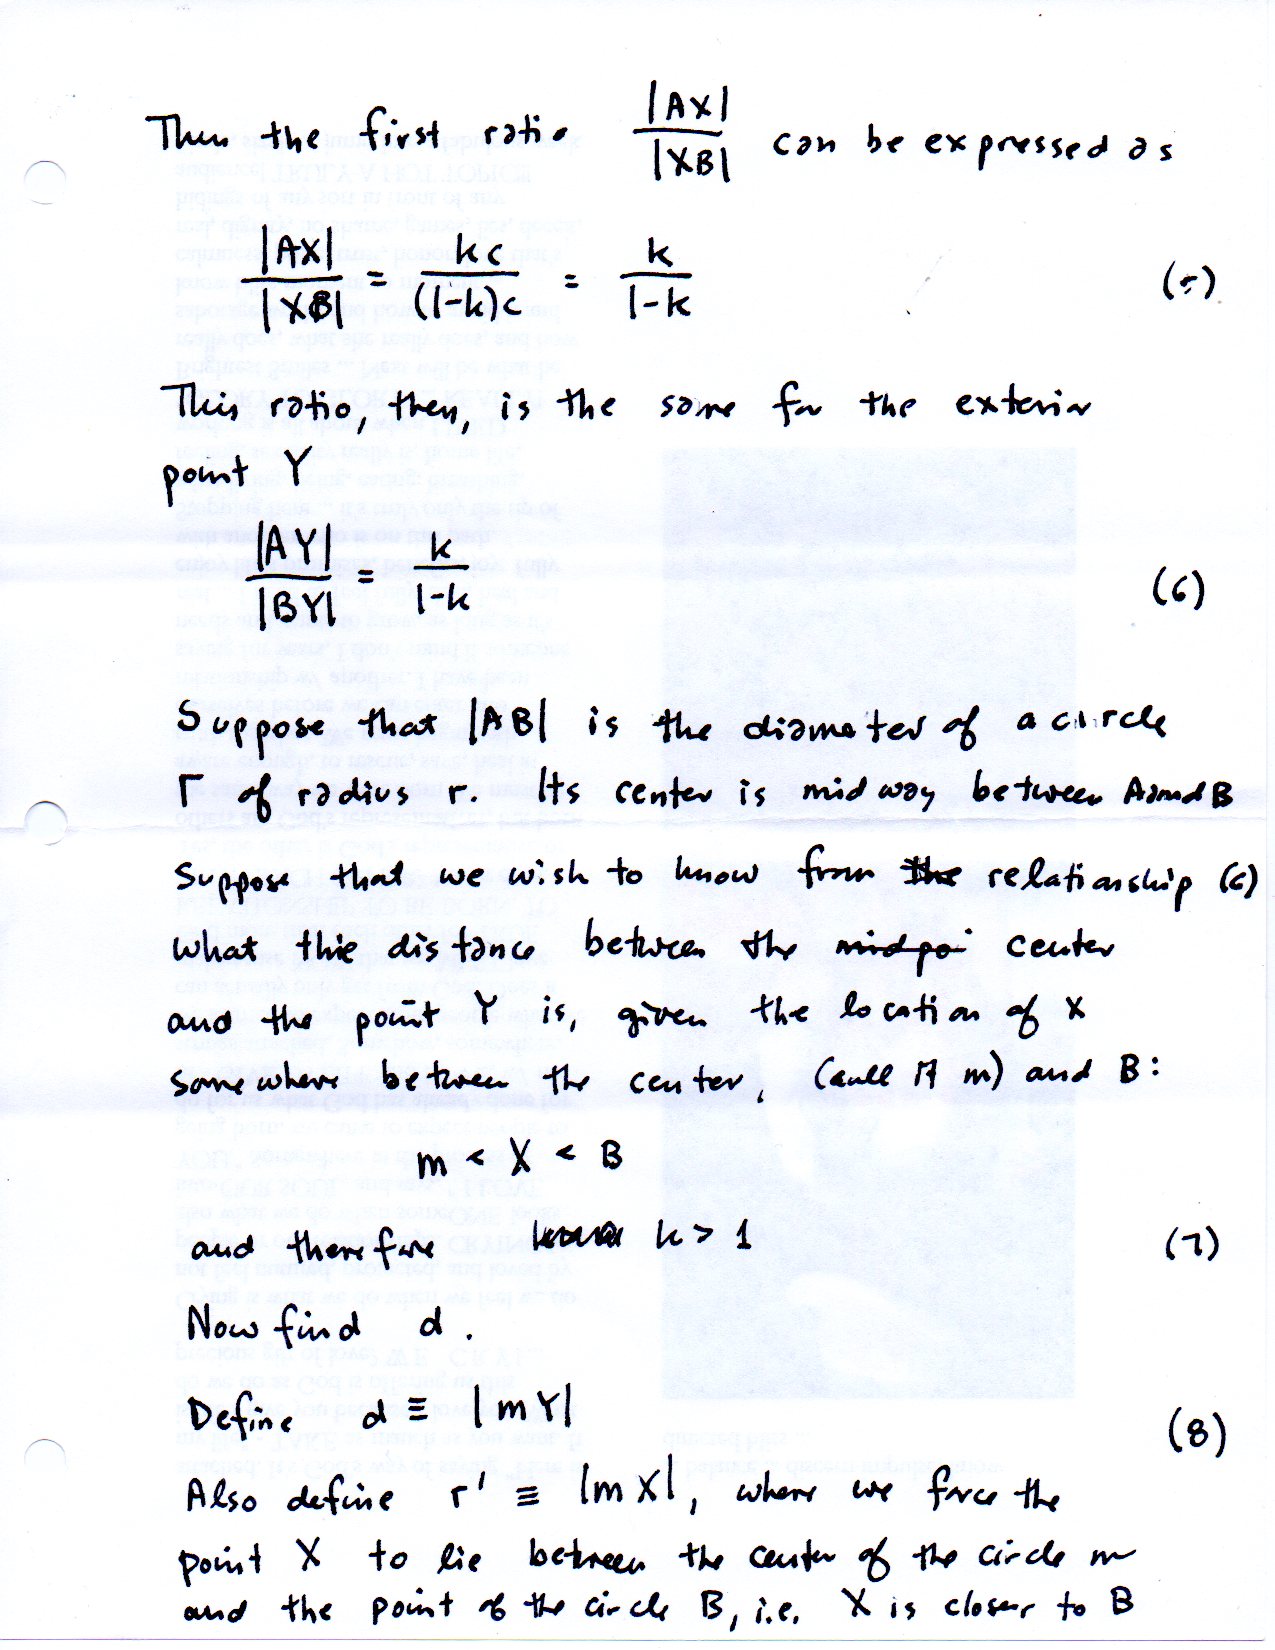 Then the first ratio |AX| / |XB| can be expressed as
|AX| / |XB| = kc / (1-k)c = k / 1-k (5)
This ratio, then, is the same for the exterior
point Y
|AY| / |BY| = k / 1-k (6)
Suppose that |AB| is the diameter of a circle
Γ of radius r. Its center is midway between A and B
Suppose that we wish to know from the relationship (6)
what the distance between the midpoi center
and the point Y is, given the location of X
somewhere between the center, (call it m) and B:
m < X < B
and therefore k > 1 (7)
Now find d.
Define d ≡ |mY| (8)
Also define r' ≡ |mX|, where we force the
point X to lie between the center of the circle m
and the point of the circle B, i.e. X is closer to B